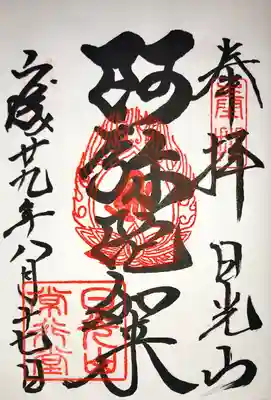 奉拝 日光山
阿弥陀如来
平成廿九年八月十七日
日光山
常行堂